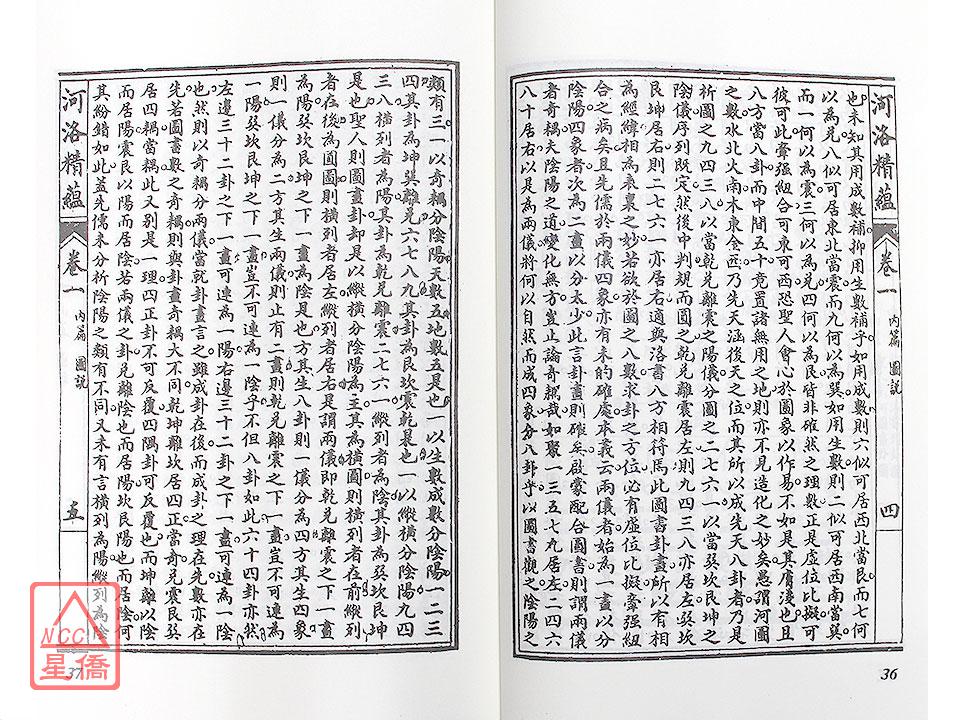 河洛精蘊
卷一
內篇 圖說
四
也未知其用成數補抑用生數補乎如用成數則六似可居西北當艮而七何
以為兌八似可居東北當震而九何以為巽如用生數則二似可居西南當巽
而一何以為震三何以為兌四何以為艮皆非確然之理數正是虛位比擬可
彼可此牽強紐合可東可西恐聖人會心於圖象以作易不如是其膚淺也且
八方當八卦而中間五十竟置諸無用之地則亦不見造化之妙矣愚謂河圖
之數水北火南木東金西乃先天涵後天之位而其所以成先天八卦者乃是
析圖之九四三八以當乾兌離震之陽儀分圖之二七六一以當巽坎艮坤之
陰儀序列既定然後中判規而圓之乾兌離震居左則九四三八亦居左巽坎
艮坤居右則二七六一亦居右適與洛書八方相符焉此圖書卦畫所以有相
為經緯相為表裏之妙若欲於圖之八數求卦之方位必有虛位比擬牽強紐
合之病矣且先儒於兩儀四象亦有未的確處本義云兩儀者始為一畫以分
陰陽四象者次為二畫以分太少此言卦畫則確矣啟蒙配合圖書則謂兩儀
者奇耦夫陰陽之道變化無方豈止論奇耦哉如聚一三五七九居左二四六
八十居右以是為兩儀將何以自然而成四象分八卦乎以圖書觀之陰陽之
36
類有三一以奇耦分陰陽天數五地數五是也一以生數成數分陰陽一二三
四其卦為坤巽離兌六七八九其卦為艮坎震乾是也一以縱橫分陰陽九四
三八橫列者為陽其卦為乾兌離震二七六一縱列者為陰其卦為巽坎艮坤
是也聖人則圖畫卦卻是以縱橫分陰陽為主其為橫圖則橫列者在前縱列
者在後為圓圖則橫列者居左縱列者居右是謂兩儀即乾兌離震之下一畫
為陽巽坎艮坤之下一畫為陰是也方其生八卦則一儀分為四方其生四象
則一儀分為二方其生兩儀則止有二畫則乾兌離震之下一畫豈不可連為
一陽巽坎艮坤之下一畫豈不可連為一陰乎不但八卦如此六十四卦亦然
左邊三十二卦之下一畫可連為一陽右邊三十二卦之下一畫可連為一陰
也然則以奇耦分兩儀當就卦畫言之雖成卦在後而成卦之理在先數亦在
先若圖書數之奇耦則與卦畫奇耦大不同乾坤離坎居四正當奇兌震艮巽
居四耦當耦此又別是一理四正卦不可反覆四隅卦可反覆也而坤離以陰
而居陽震艮以陽而居陰若兩儀之卦兌離陰也而居陽坎艮陽也而居陰何
其紛錯如此蓋先儒未分析陰陽之類有不同又未有言橫列為陽縱列為陰
河洛精蘊
卷一
內篇 圖說
五
37
NCC
星僑